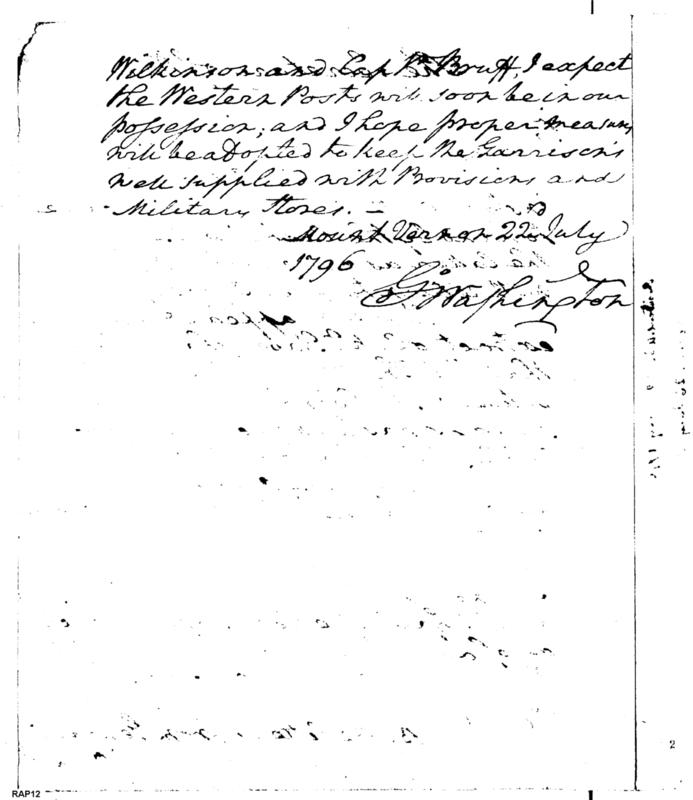 Wilkinson and Capt Bruff, I expect
the Western Posts will soon be in our
possession; and I hope proper measures
will be adopted to keep the Garrisons
well supplied with Provisions and
Military Stores. —
Mount Vernon 22d July
1796
Go Washington
2
RAP12